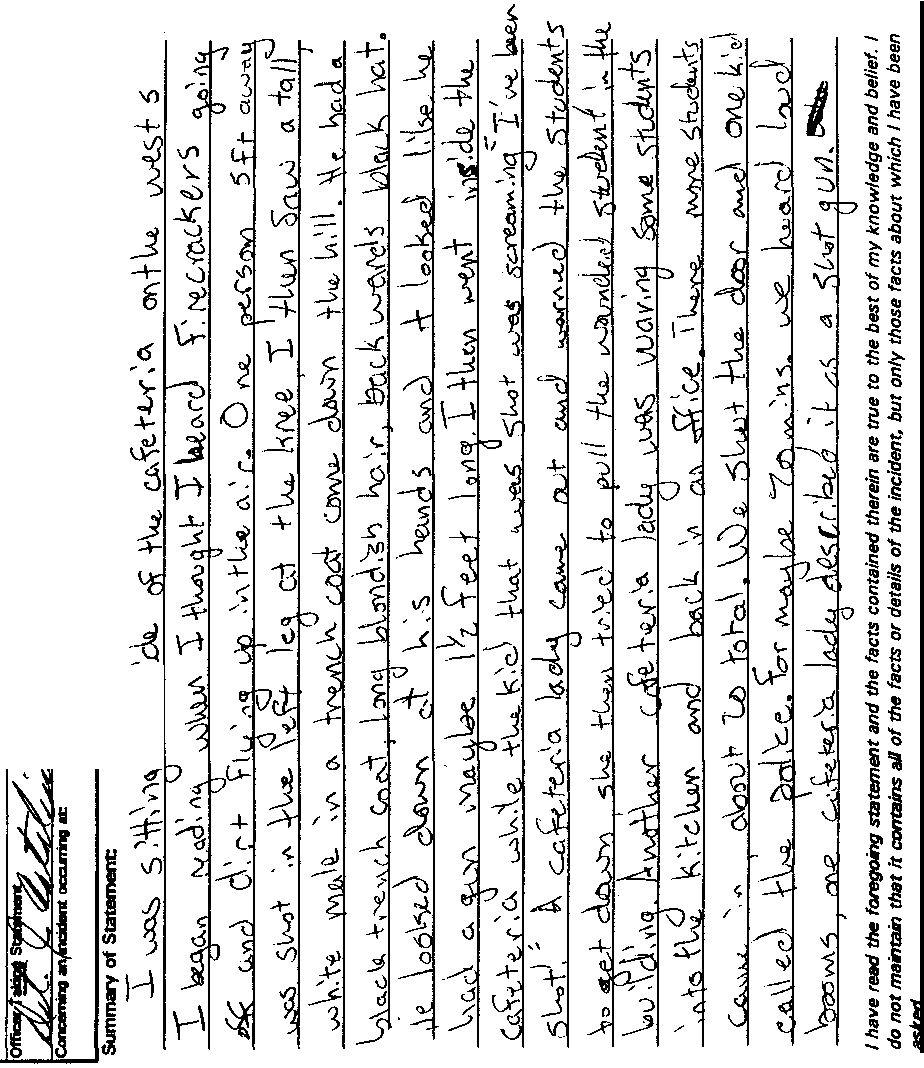 Officer Taking Statement
Concerning an incident occurring at:
Summary of Statement:
I was sitting ide of the cafeteria on the west s
I began reading when I thought I heard firecrackers going
off and dirt flying up in the air. One person 5ft away
was shot in the left leg at the knee I then saw a tall
white male in a trench coat come down the hill. He had a
black trench coat, long blondish hair, backwards black hat.
He looked down at his hands and it looked like he
had a gun maybe 1½ feet long. I then went inside the
cafeteria while the kid that was shot was screaming "I've been
shot." A cafeteria lady came out and warned the students
to get down she then tried to pull the wounded student in the
building. Another cafeteria lady was waving some students
into the kitchen and back in an office. There more students
came in about 20 total. We shut the door and one kid
called the police. For maybe 20 mins. we heard loud
booms, one cafeteria lady described it as a shot gun.
I have read the foregoing statement and the facts contained therein are true to the best of my knowledge and belief. I
do not maintain that it contains all of the facts or details of the incident, but only those facts about which I have been
asked.